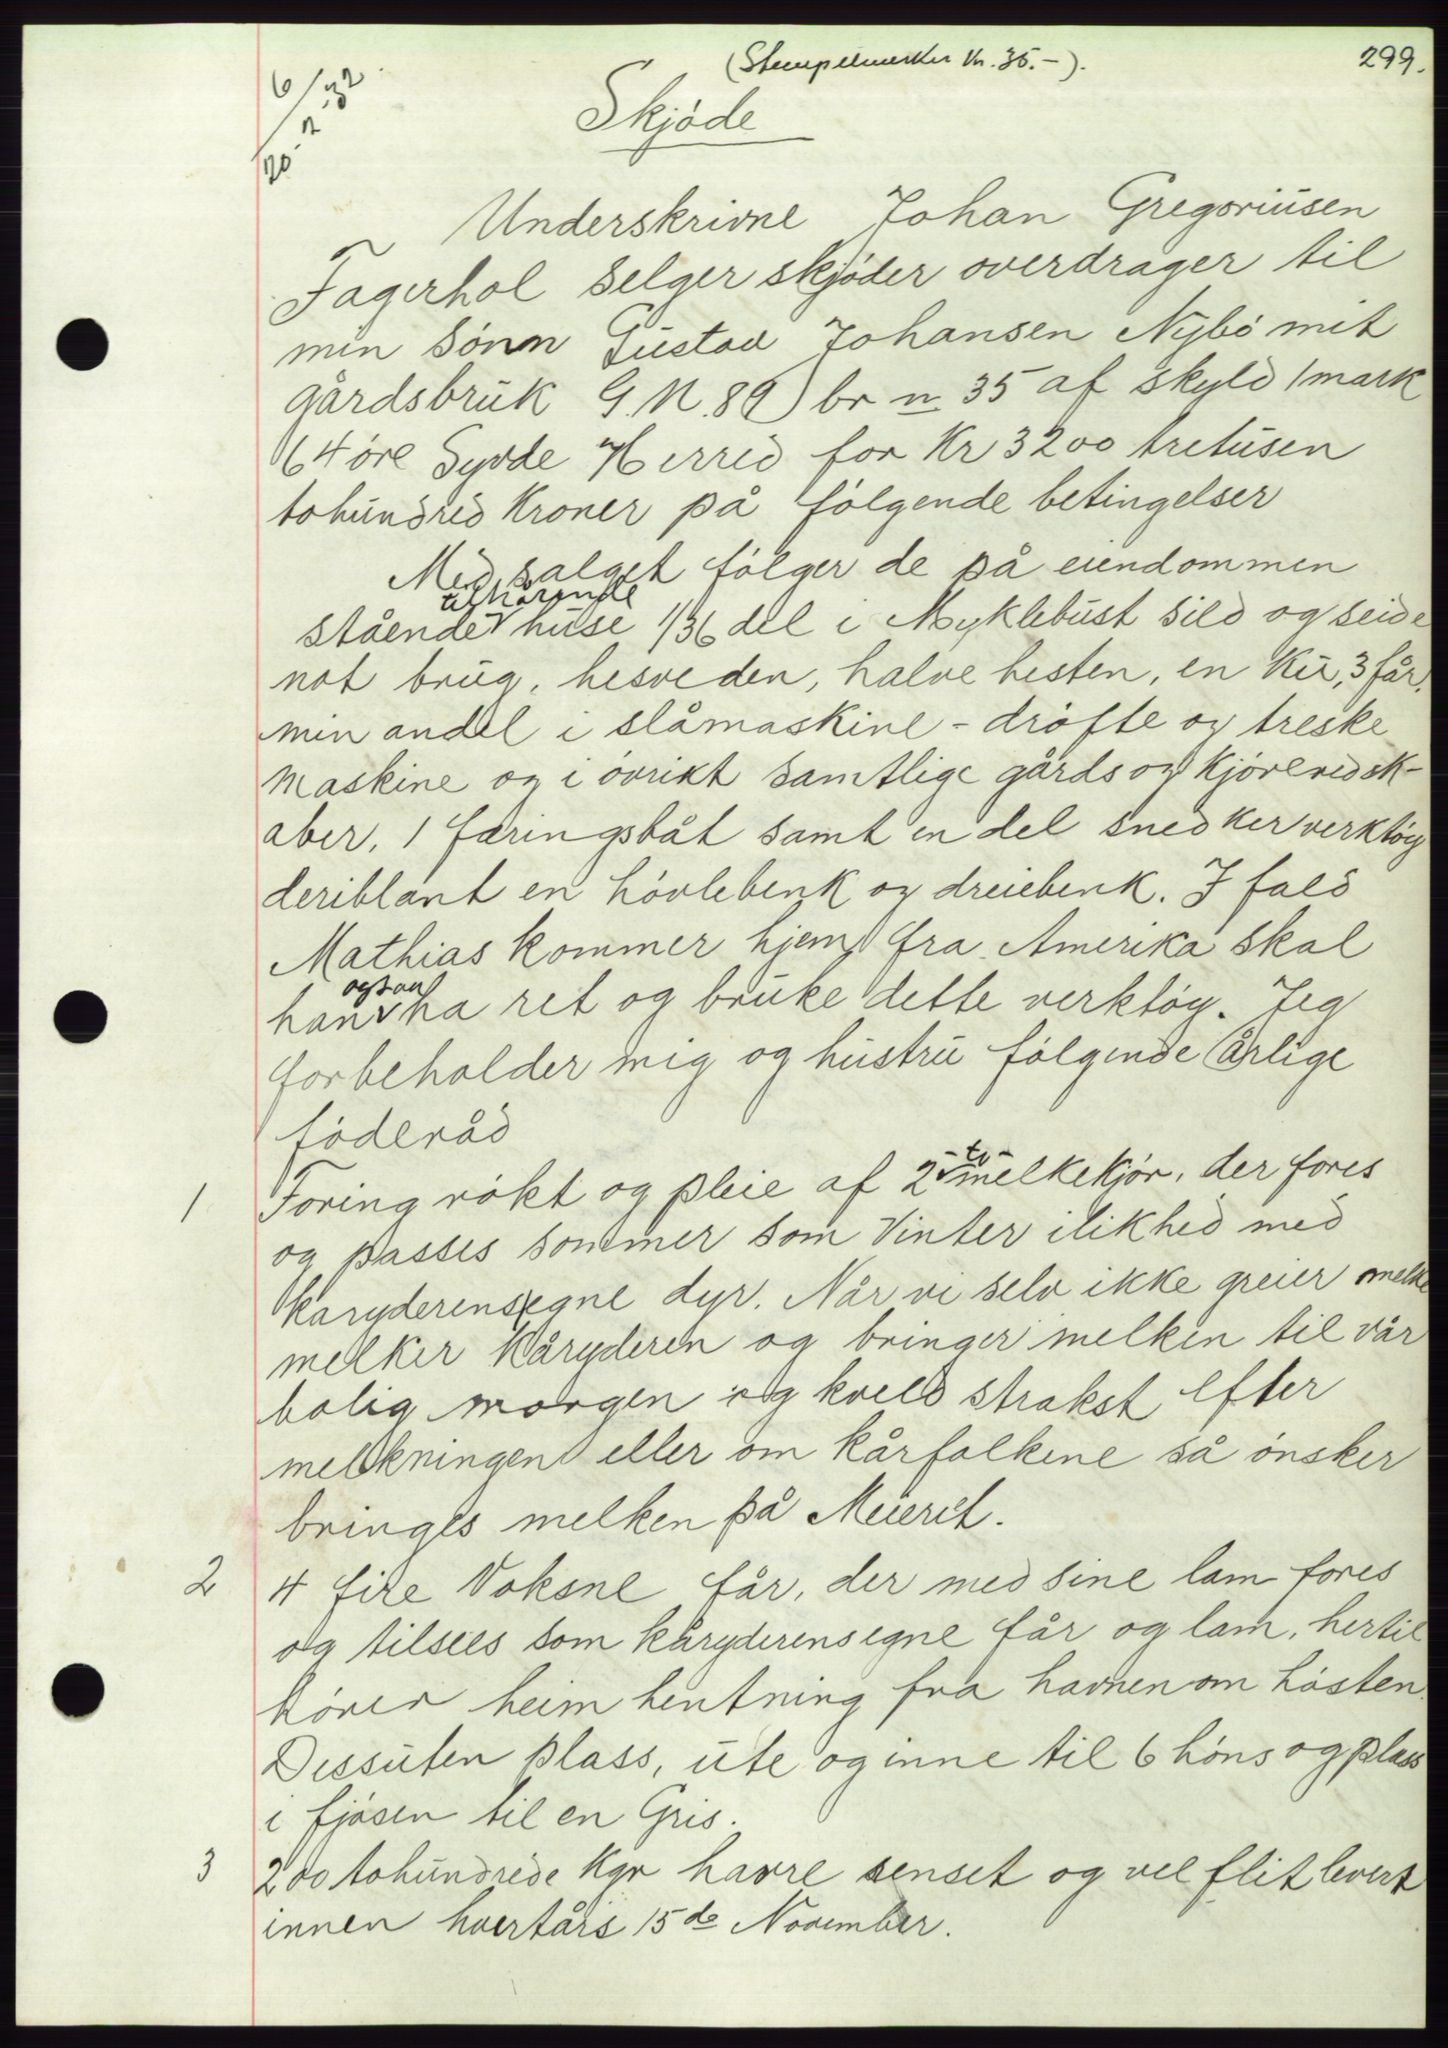 (Stempelmerker Kr. 35.-).
299.
6/20-2-32
Skjøde
Underskrivne Johan Gregoriusen
Fagerhol selger skjøder overdrager til
min sønn Gustav Johansen Nybø mit
gårdsbruk G.N. 89 br n 35 af skyld 1 mark
64 øre Syvde Herred for Kr 3200 tretusen
tohundred Kroner på følgende betingelser
Med salget følger de på eiendommen
stående tilhørende huse 1/36 del i Myklebust sild og seide
not brug, hesveden, halve hesten, en Ku, 3 får,
min andel i slåmaskine - drøfte og treske
maskine og i øvrikt samtlige gårds og Kjøreredsk-
aber, 1 færingsbåt samt en del snedkerverktøy
deriblant en høvlebenk og dreiebenk. I fald
Mathias kommer hjem fra Amerika skal
han ogsaa ha ret og bruke dette verktøy. Jeg
forbeholder mig og hustru følgende årlige
føderåd
1 Foring røkt og pleie af 2 -to- melkekjør, der fores
og passes sommer som Vinter ilikhed med
karyderens egne dyr. Når vi selv ikke greier melke
melker Kåryderen og bringer melken til vår
bolig morgen og kveld strakst efter
melkningen eller om kårfolkene så ønsker
bringes melken på Meieret.
2 4 fire Voksne får, der med sine lam fores
og tilsees som kåryderens egne får og lam, hertil
hører heim hentning fra havnen om høsten.
Dessuten plass, ute og inne til 6 høns og plass
i fjøsen til en Gris.
3 200 tohundrede Kgr havre senset og vel flit levert
innen hvertårs 15 de November.